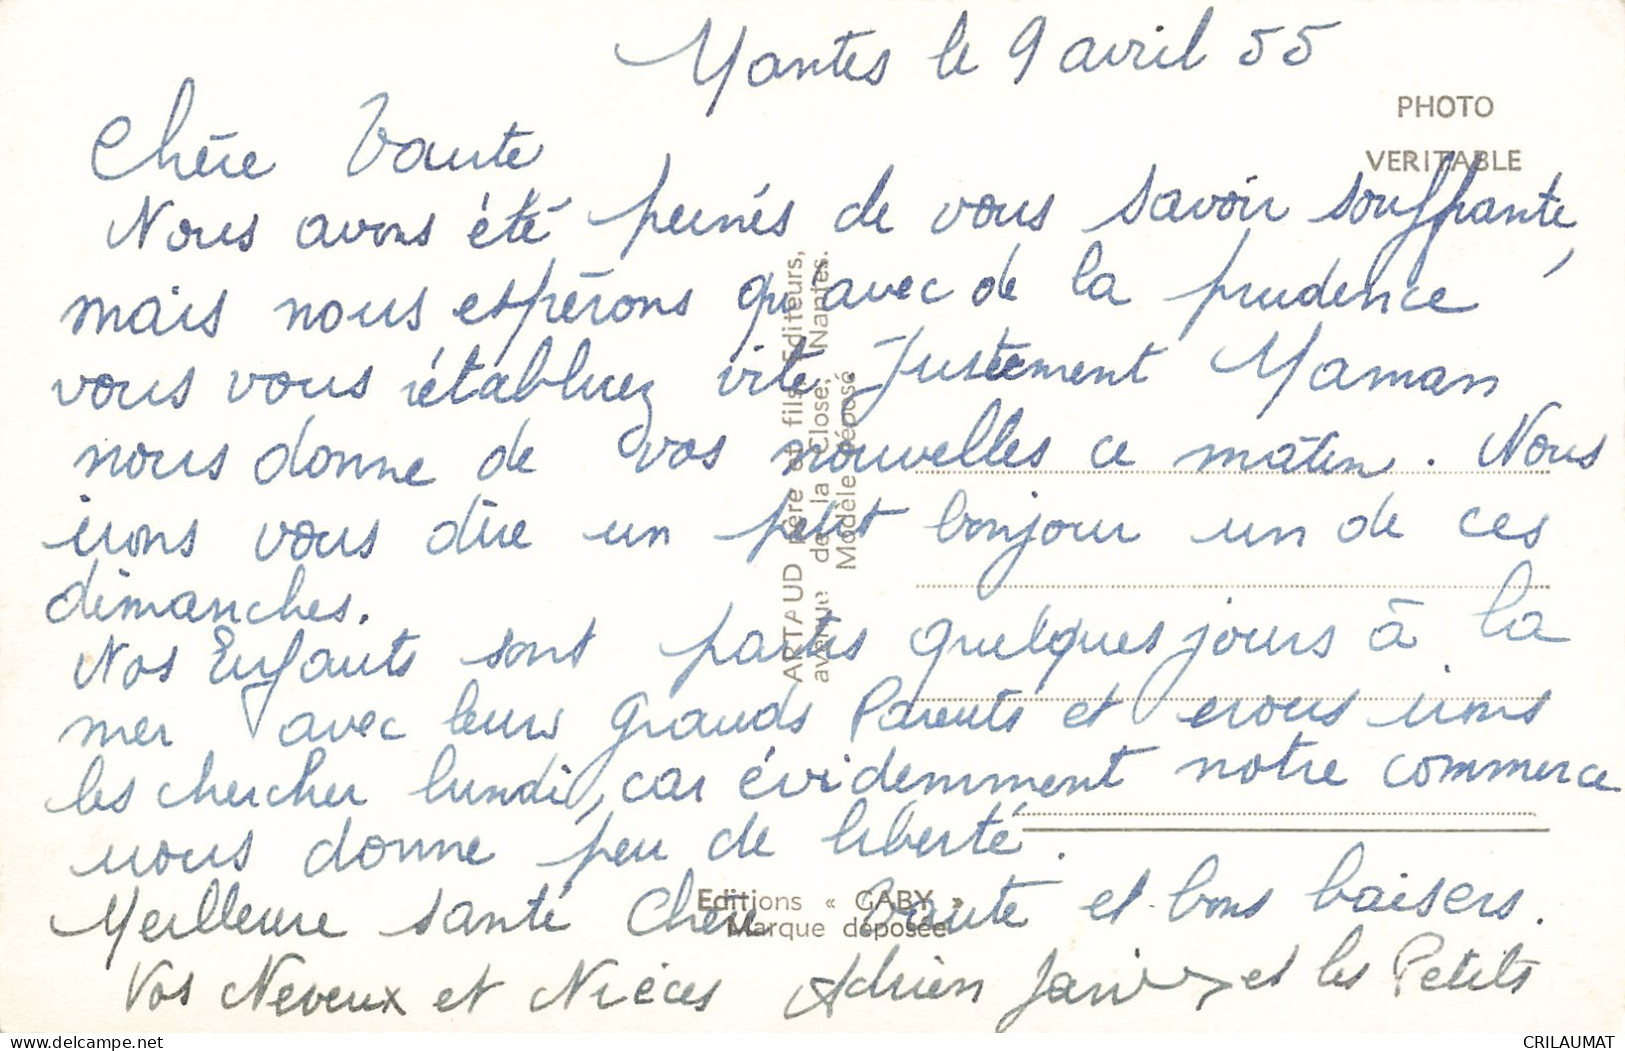 Nantes le 9 avril 55
PHOTO
VERITABLE
Chère Tante
Nous avons été peinés de vous savoir souffrante,
mais nous espérons qu'avec de la prudence
vous vous rétablirez vite. Justement Maman
nous donne de vos nouvelles ce matin. Nous
irons vous dire un petit bonjour un de ces
dimanches.
Nos Enfants sont partis quelques jours à la
mer avec leurs Grands Parents et nous irons
les chercher lundi, car évidemment notre commerce
nous donne peu de liberté.
Meilleure santé Chère Tante et bons baisers.
Vos Neveux et Nièces Adrien et les Petits
ARTAUD père et fils Editeurs,
avenue de la Close, Nantes.
Modèle déposé
Editions « GABY »
Marque déposée
delcampe.net
CRILAUMAT